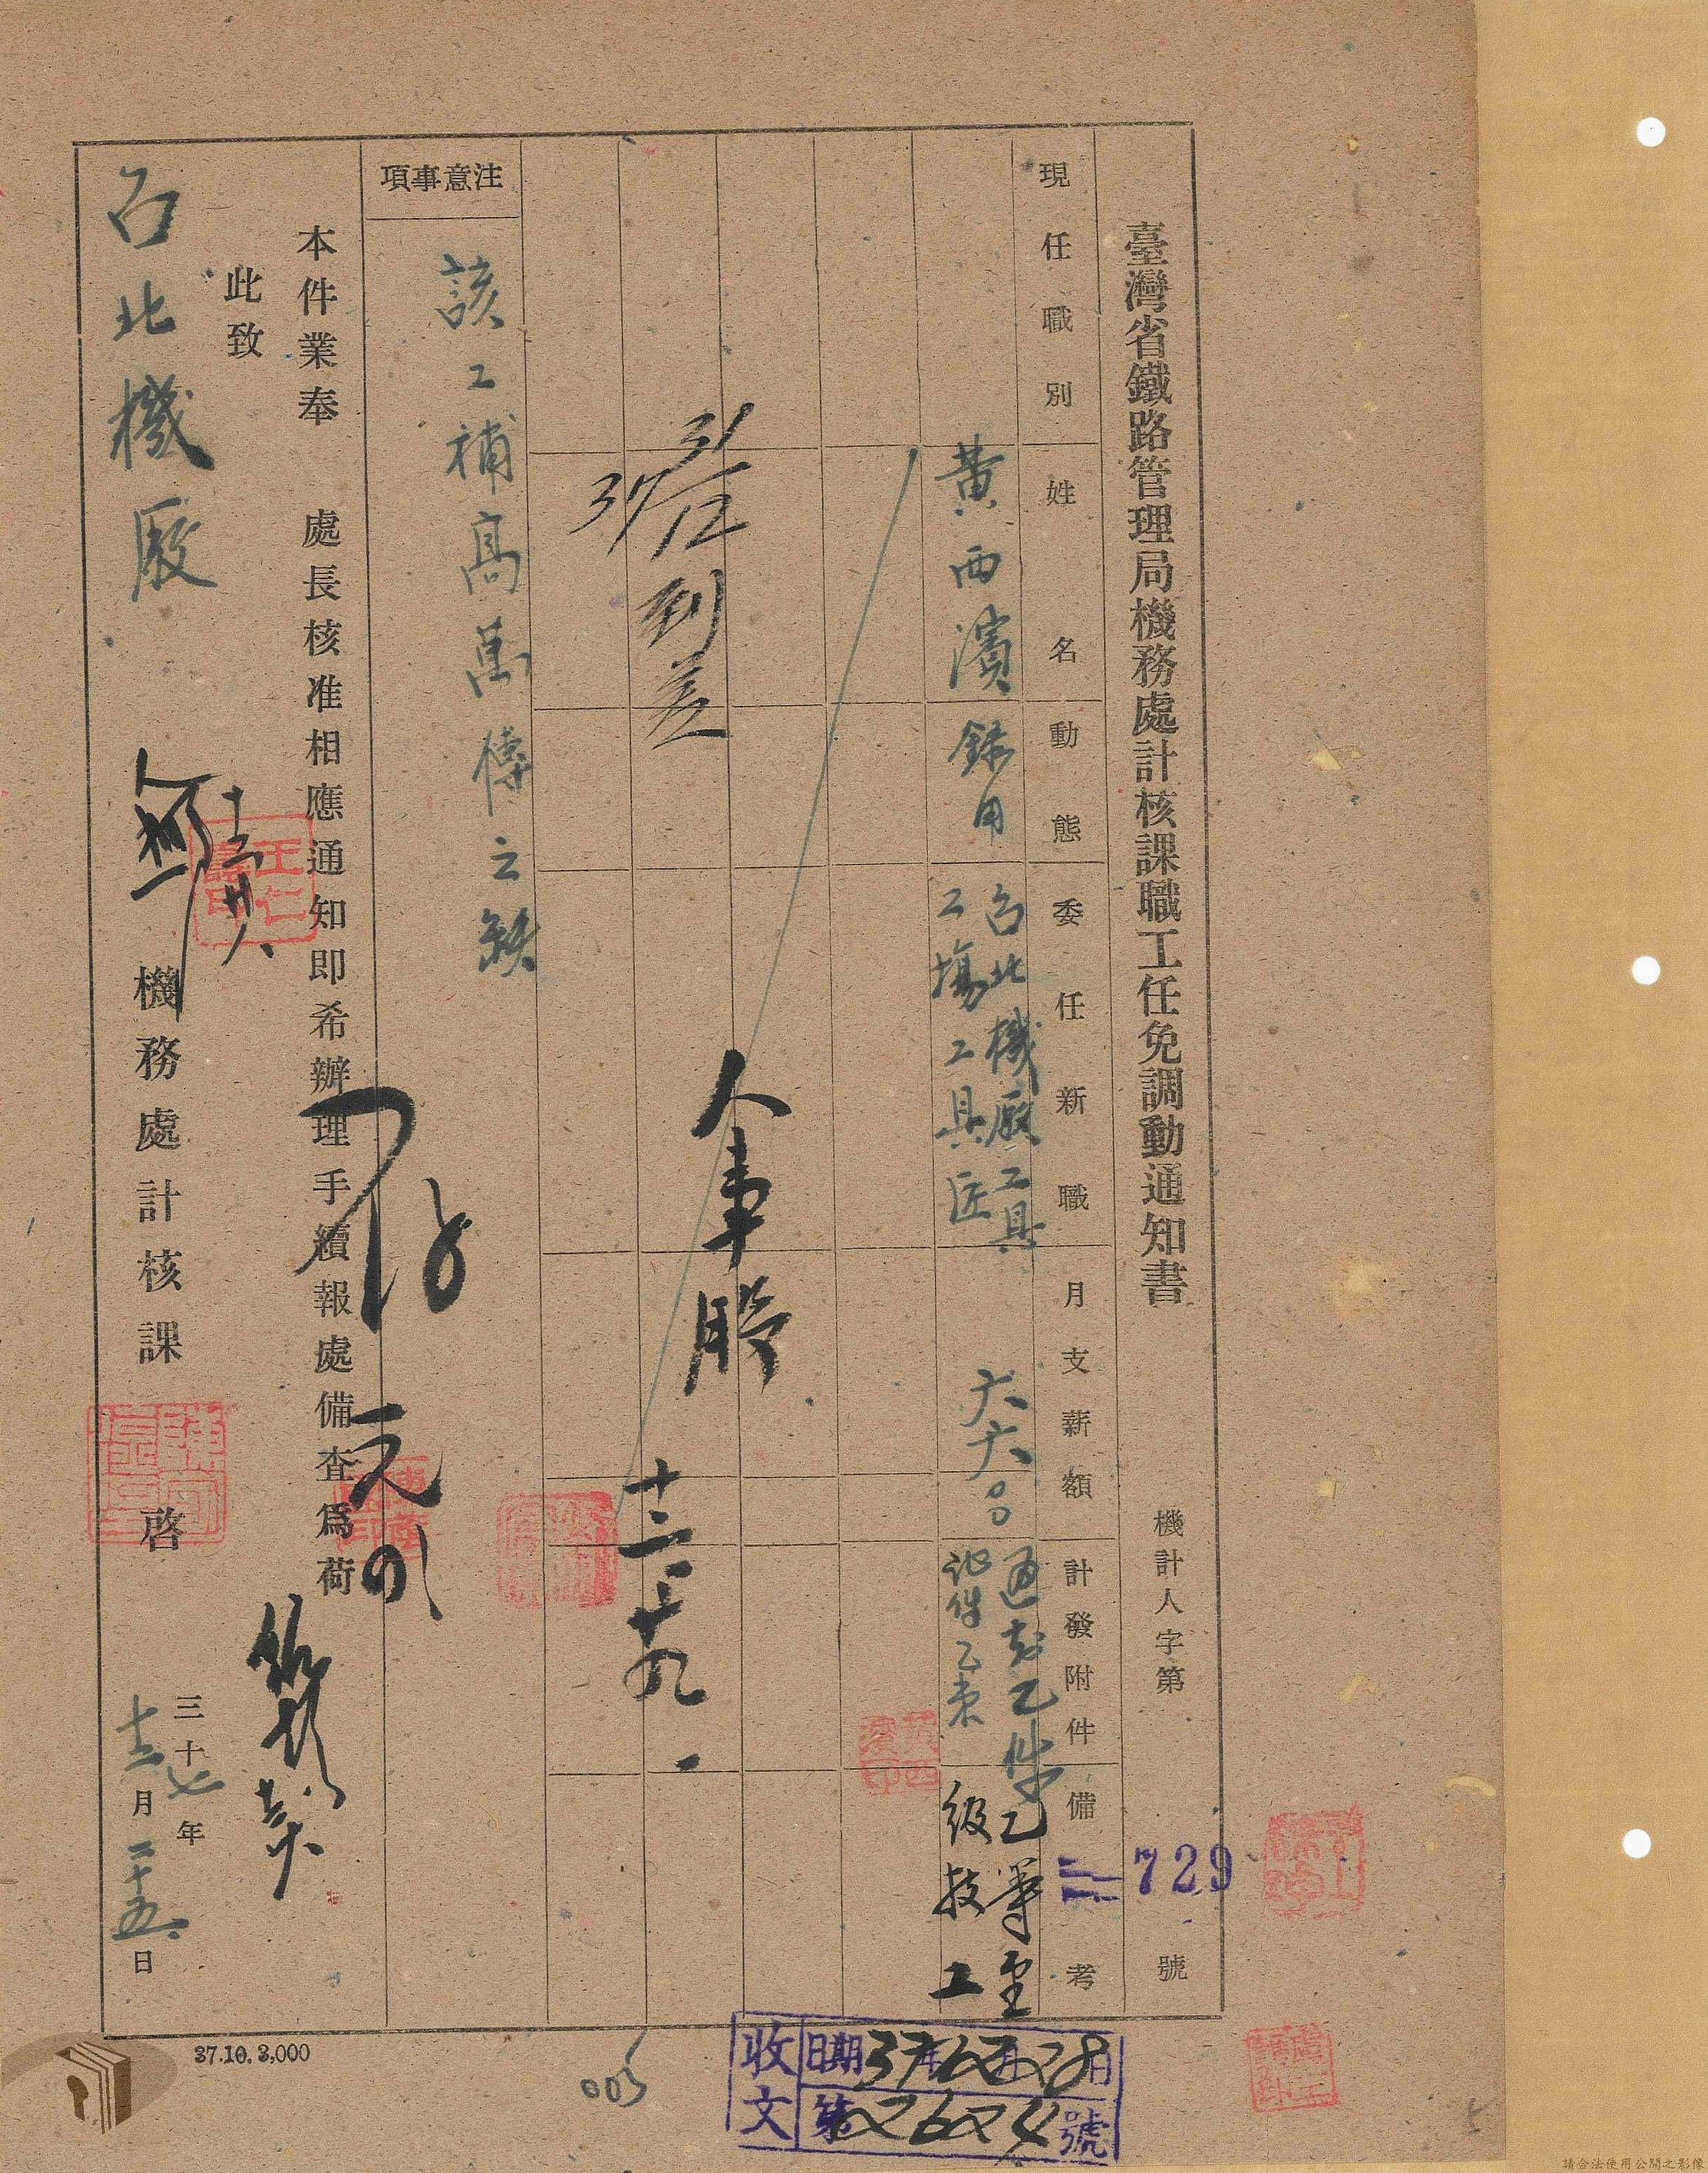 臺灣省鐵路管理局機務處計核課職工任免調動通知書
機計人字第 729 號
現任職別
姓名
動態
委任新職
月支薪額
計發附件
備考
黄西濱
錄用
台北機厰工具
工場工具匠
六六〇
通知乙件
証件乙束
級技工
31/12
37
到差
人事股
十二、廿九、
注意事項
該工補高萬樽之缺
本件業奉 處長核准相應通知即希辦理手續報處備查爲荷
此致
台北機厰
機務處計核課 啓
三十七年
十二月二十五日
37.10.3,000
003
收文
日期37年12月28日
第2624號
請合法使用公開之影像